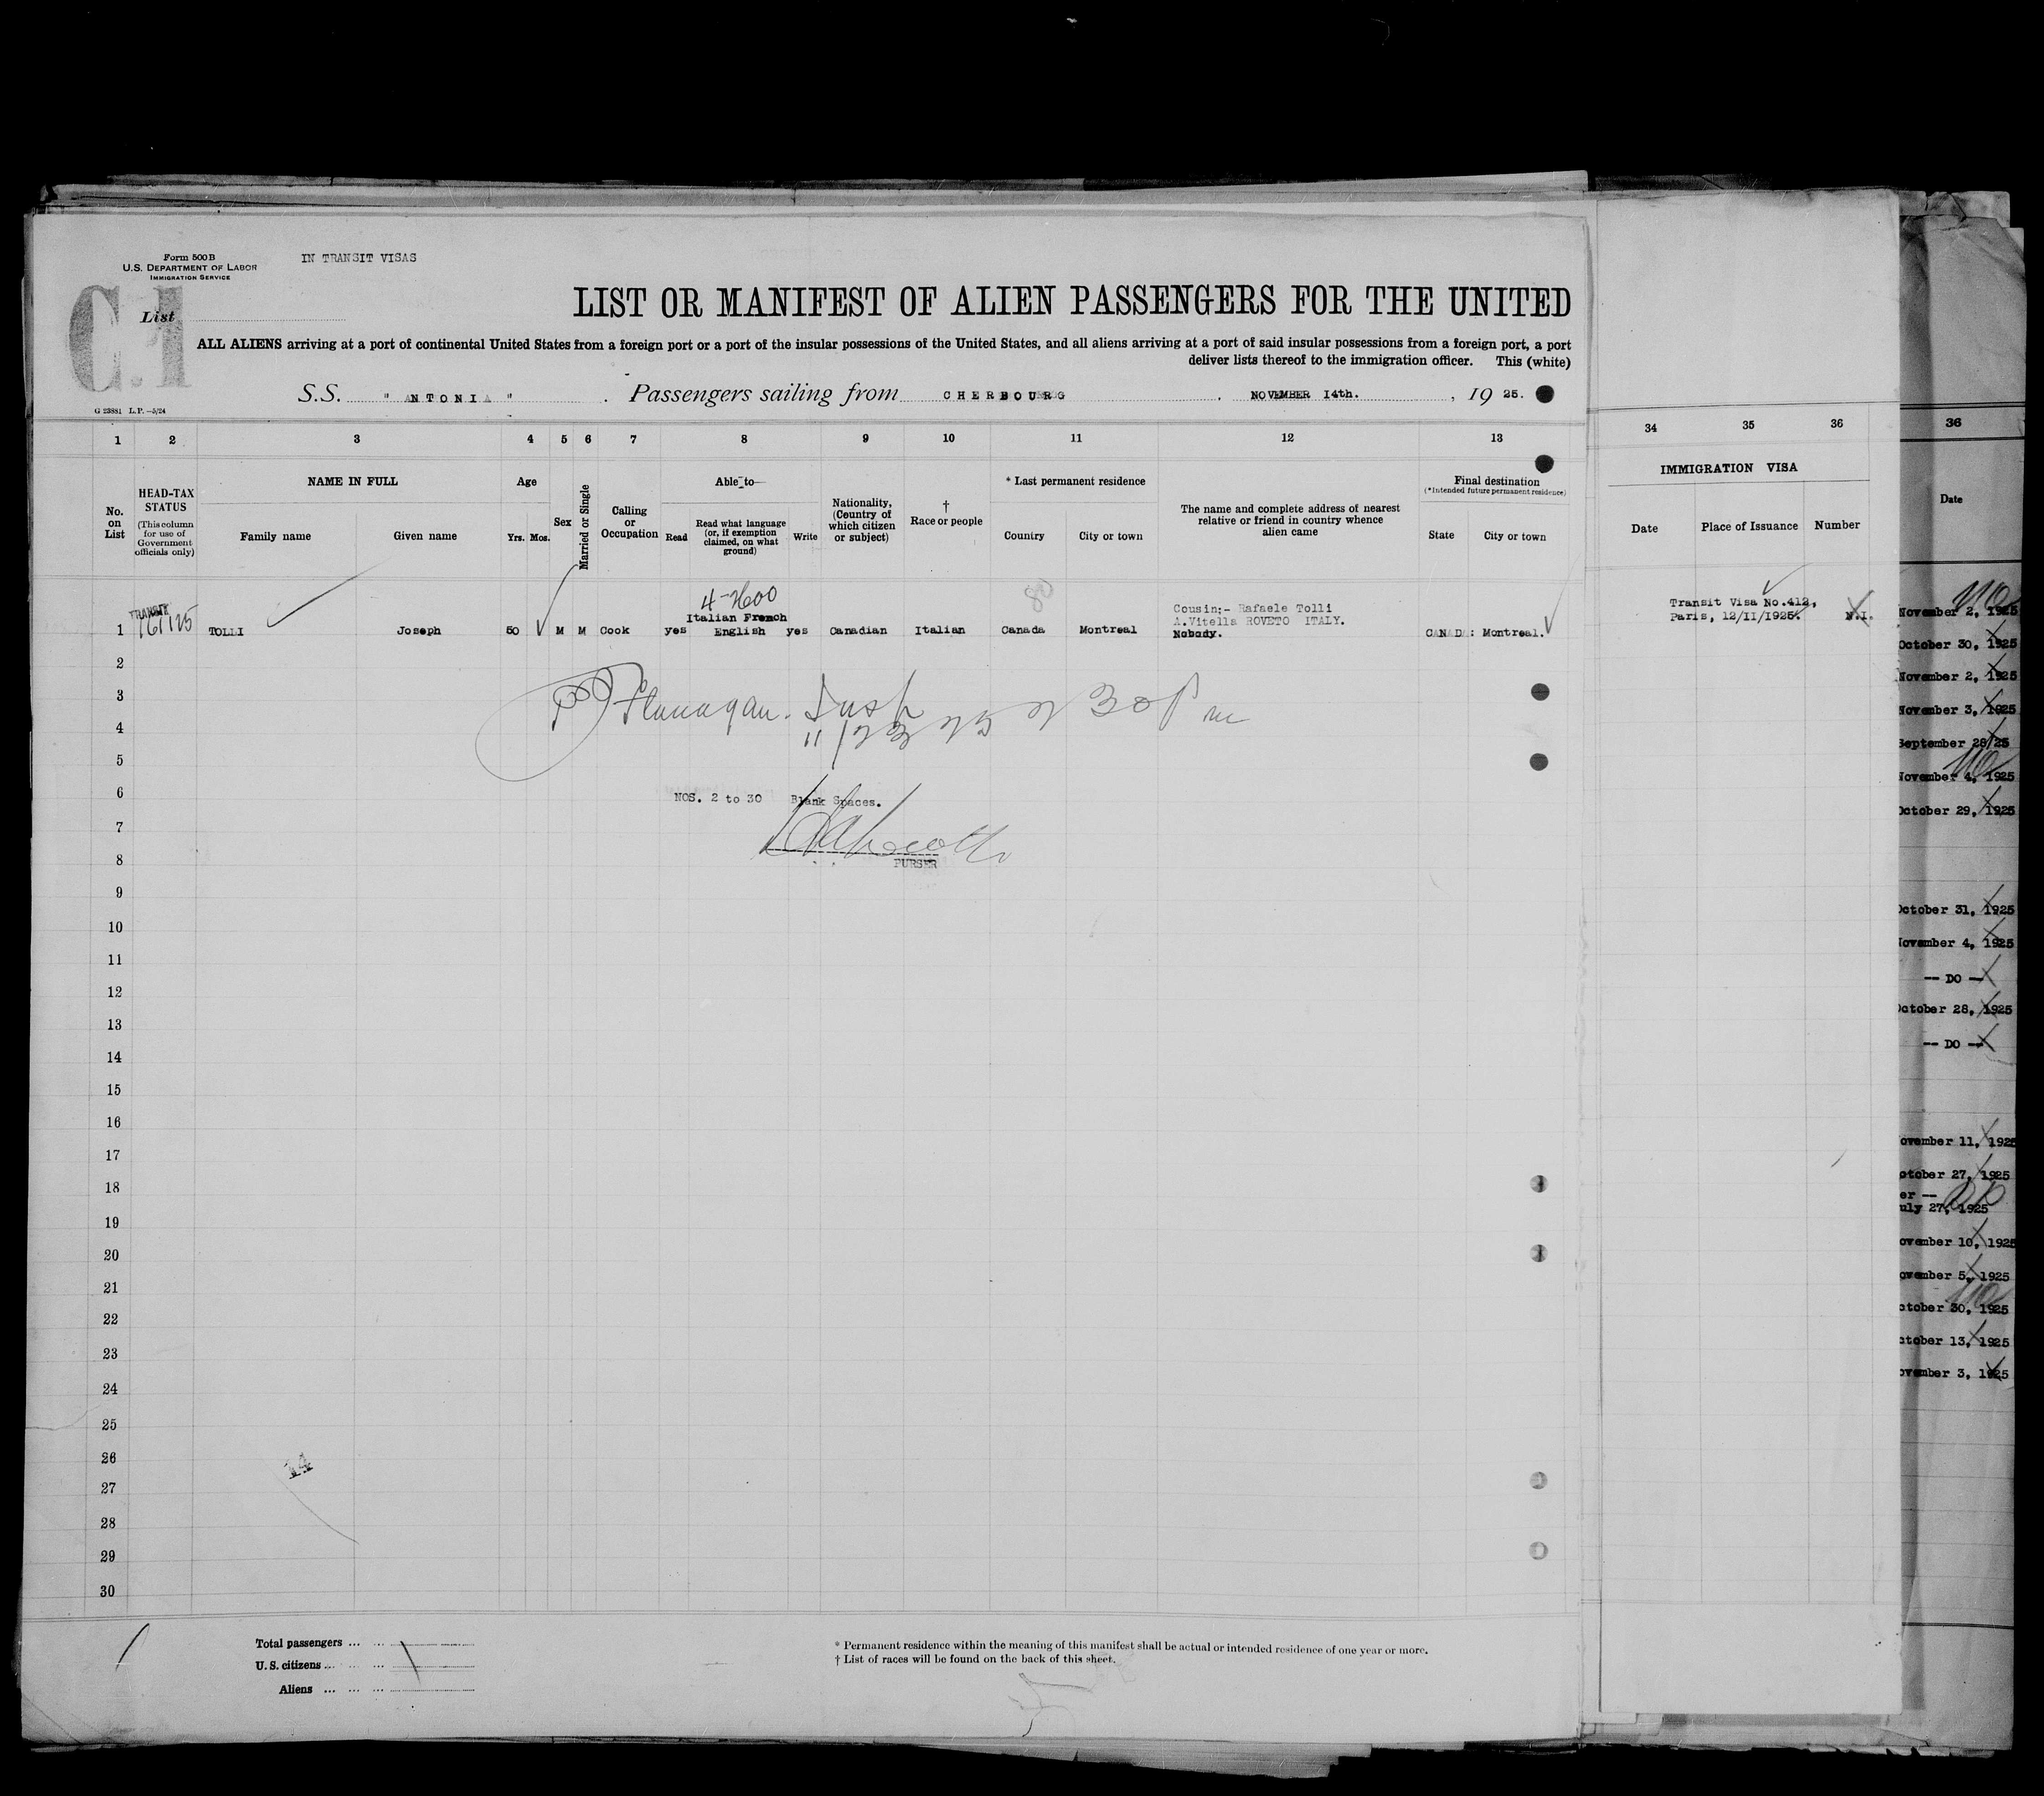 Form 500B
U.S. DEPARTMENT OF LABOR
IMMIGRATION SERVICE
IN TRANSIT VISAS
C.1
List
LIST OR MANIFEST OF ALIEN PASSENGERS FOR THE UNITED
ALL ALIENS arriving at a port of continental United States from a foreign port or a port of the insular possessions of the United States, and all aliens arriving at a port of said insular possessions from a foreign port, a port
deliver lists thereof to the immigration officer. This (white)
S.S. " ANTONIA " . Passengers sailing from CHERBOURG , NOVEMBER 14th. , 19 25.
G 23881 L.P.—5/24
1 2 3 4 5 6 7 8 9 10 11 12 13 34 35 36
No. on List
HEAD-TAX STATUS
(This column for use of Government officials only)
NAME IN FULL
Family name Given name
Age
Yrs. Mos.
Sex
Married or Single
Calling or Occupation
Able to—
Read
Read what language (or, if exemption claimed, on what ground)
Write
Nationality, (Country of which citizen or subject)
† Race or people
* Last permanent residence
Country City or town
The name and complete address of nearest relative or friend in country whence alien came
Final destination
(*Intended future permanent residence)
State City or town
IMMIGRATION VISA
Date Place of Issuance Number
36
Date
TRANSIT
4-2600
80
1 TOLLI Joseph 50 M M Cook yes Italian French English yes Canadian Italian Canada Montreal
Cousin:- Rafaele Tolli
A.Vitella ROVETO ITALY.
Nobody.
CANADA: Montreal.
Transit Visa No.412,
Paris, 12/11/1925.
N.I.
2
3
4
5
6
7
8
9
10
11
12
13
14
15
16
17
18
19
20
21
22
23
24
25
26
27
28
29
30
Flanagan. Insp
11/23 25 2 30 P m
NOS. 2 to 30 Blank Spaces.
PURSER
14
November 2, 1925
October 30, 1925
November 2, 1925
November 3, 1925
September 28/25
November 4, 1925
October 29, 1925
October 31, 1925
November 4, 1925
-- DO --
October 28, 1925
-- DO --
ovember 11, 1925
ctober 27, 1925
er --
uly 27, 1925
ovember 10, 1925
ovember 5, 1925
ctober 30, 1925
ctober 13, 1925
ovember 3, 1925
Total passengers ... ...
U. S. citizens ... ... ...
Aliens ... ... ...
* Permanent residence within the meaning of this manifest shall be actual or intended residence of one year or more.
† List of races will be found on the back of this sheet.